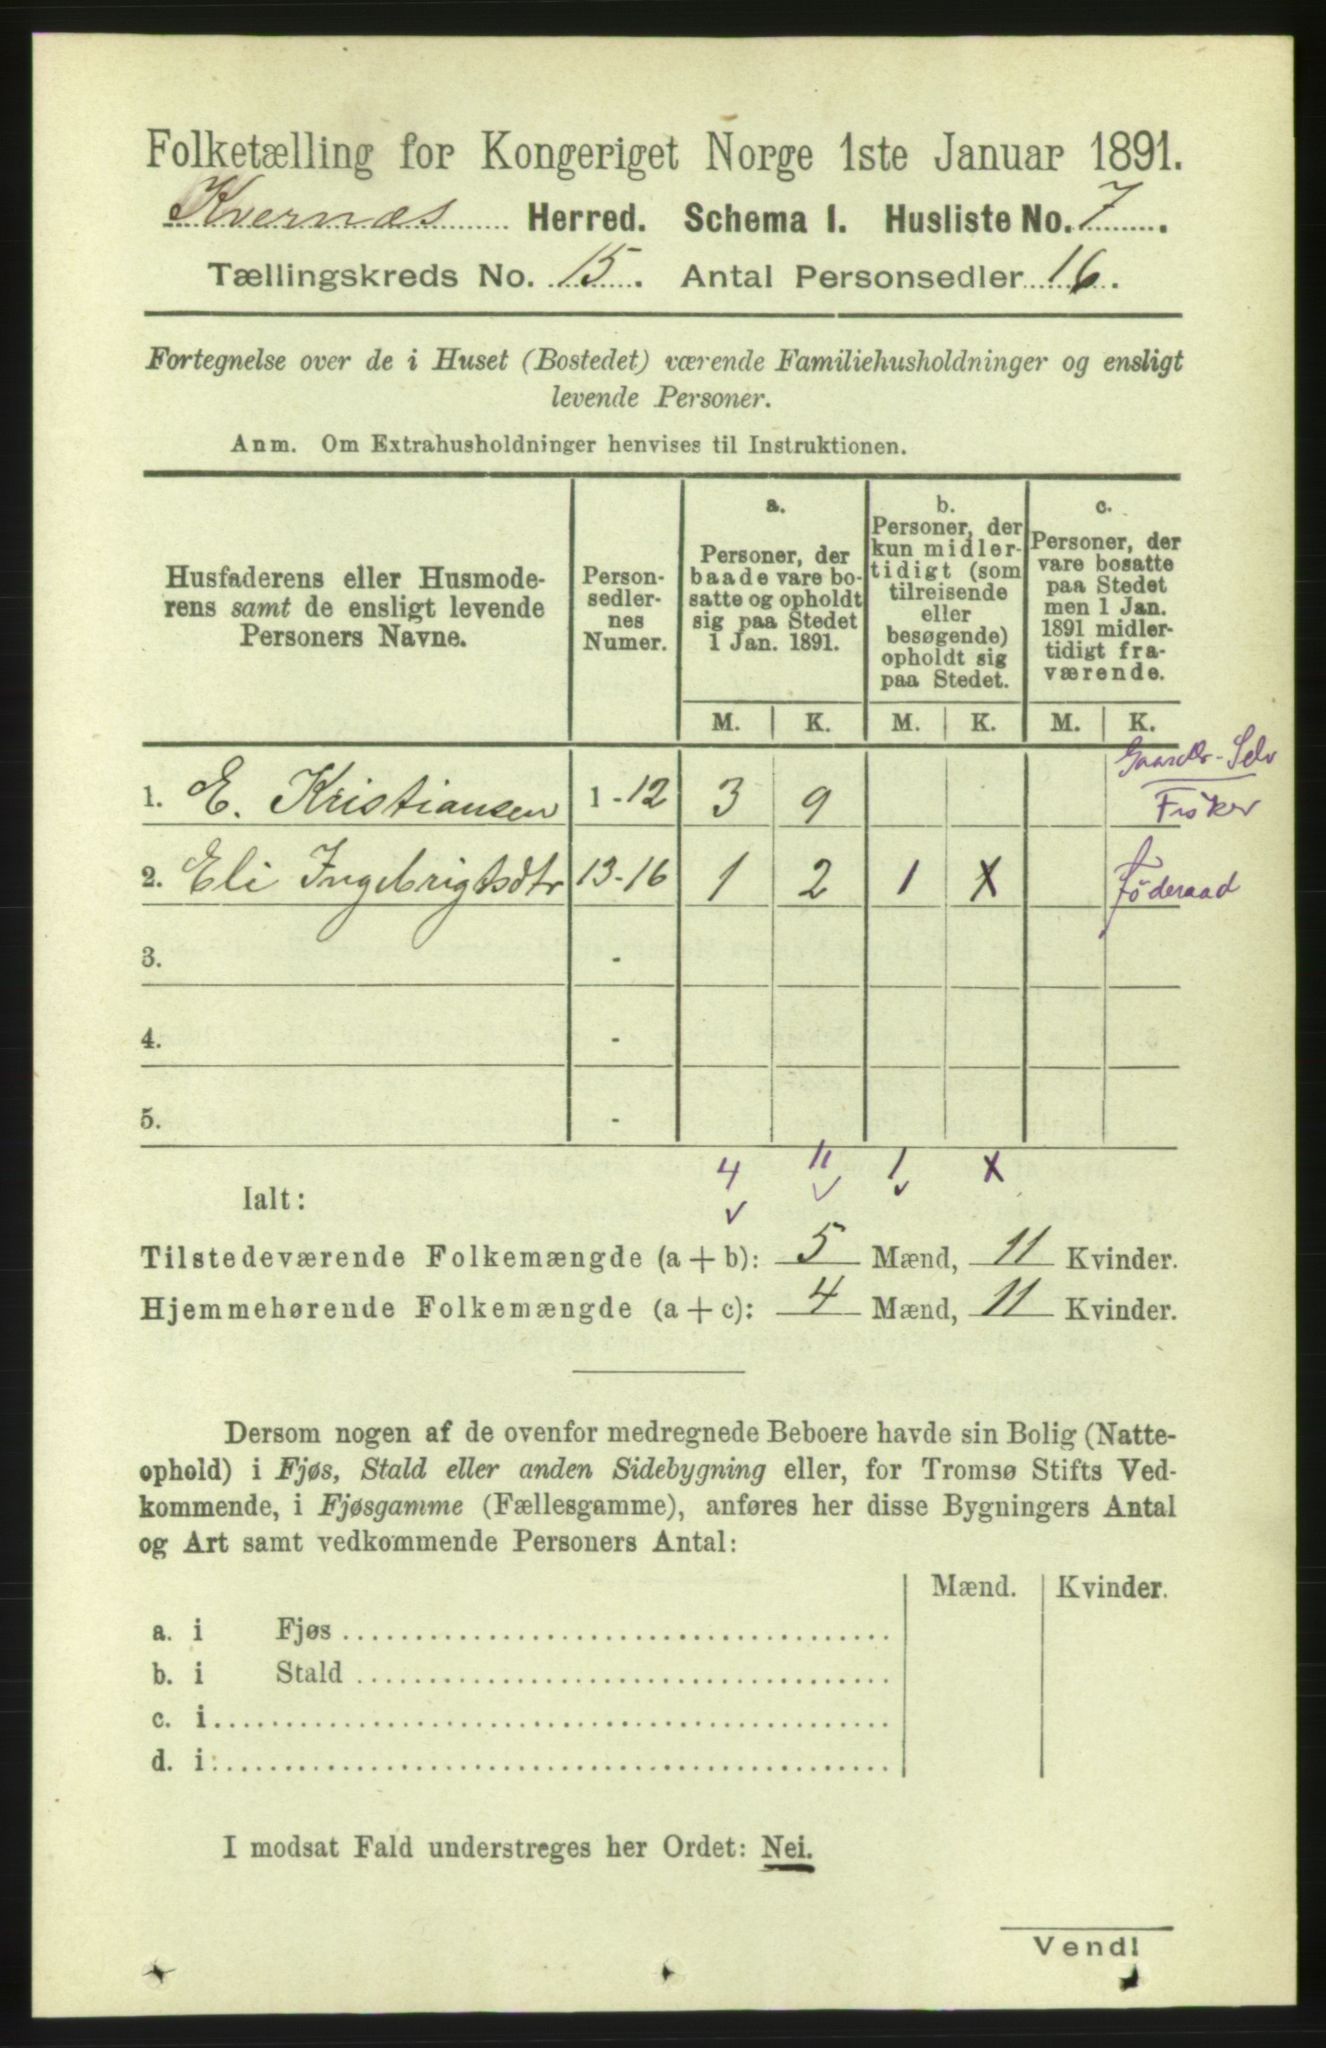 Folketælling for Kongeriget Norge 1ste Januar 1891.
Kvernæs Herred. Schema I. Husliste No. 7.
Tællingskreds No. 15. Antal Personsedler 16.
Fortegnelse over de i Huset (Bostedet) værende Familiehusholdninger og ensligt
levende Personer.
Anm. Om Extrahusholdninger henvises til Instruktionen.
Husfaderens eller Husmode-
rens samt de ensligt levende
Personers Navne.
Person-
sedler-
nes
Numer.
a.
Personer, der
baade vare bo-
satte og opholdt
sig paa Stedet
1 Jan. 1891.
b.
Personer, der
kun midler-
tidigt (som
tilreisende
eller
besøgende)
opholdt sig
paa Stedet.
c.
Personer, der
vare bosatte
paa Stedet
men 1 Jan.
1891 midler-
tidigt fra-
værende.
M. K. M. K. M. K.
Gaardbr - Selv
Fisker
1. E. Kristiansen 1 - 12 3 9
2. Eli Ingebrigtsdtr 13 - 16 1 2 1 X Föderaad
3. -
4. -
5. -
4 11 1 X
Ialt:
Tilstedeværende Folkemængde (a + b): 5 Mænd, 11 Kvinder.
Hjemmehørende Folkemængde (a + c): 4 Mænd, 11 Kvinder.
Dersom nogen af de ovenfor medregnede Beboere havde sin Bolig (Natte-
ophold) i Fjøs, Stald eller anden Sidebygning eller, for Tromsø Stifts Ved-
kommende, i Fjøsgamme (Fællesgamme), anføres her disse Bygningers Antal
og Art samt vedkommende Personers Antal:
Mænd. Kvinder.
a. i Fjøs
b. i Stald
c. i
d. i
I modsat Fald understreges her Ordet: Nei.
Vend!